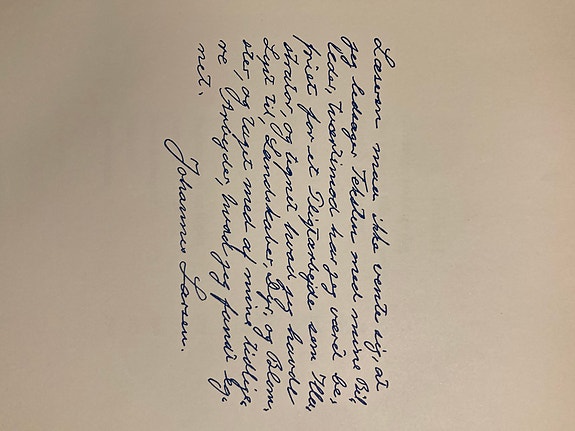 Læseren maa ikke vente sig, at
jeg ledsager Teksten med mine Bil,
leder, tværtimod har jeg været be,
friet for et Pligtarbejde som Illu,
strator, og tegnet hvad jeg havde
Lyst til, Landskaber, Dyr, og Blom,
ster, og taget med af mine tidlige,
re Arbejder, hvad jeg fandt eg,
net.
Johannes Larsen.